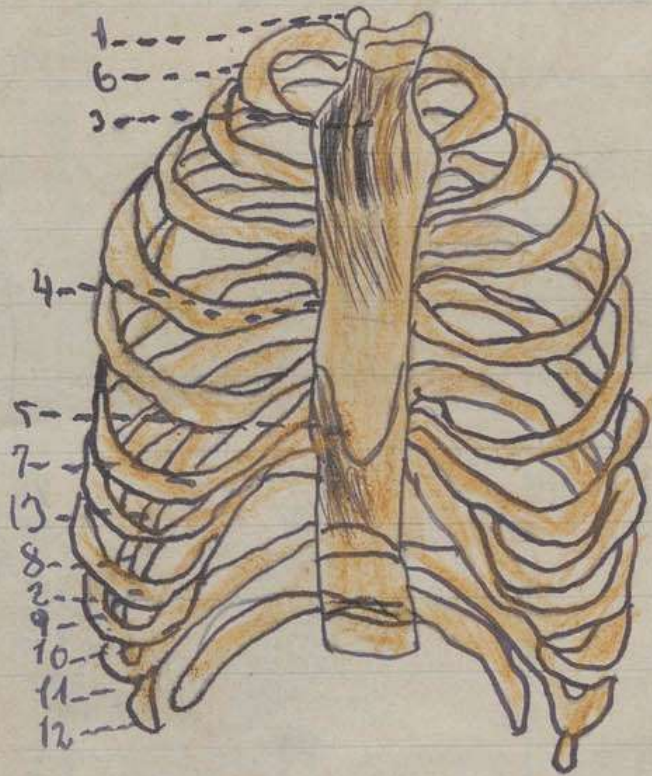 1
6
3
4
5
7
13
8
2
9
10
11
12